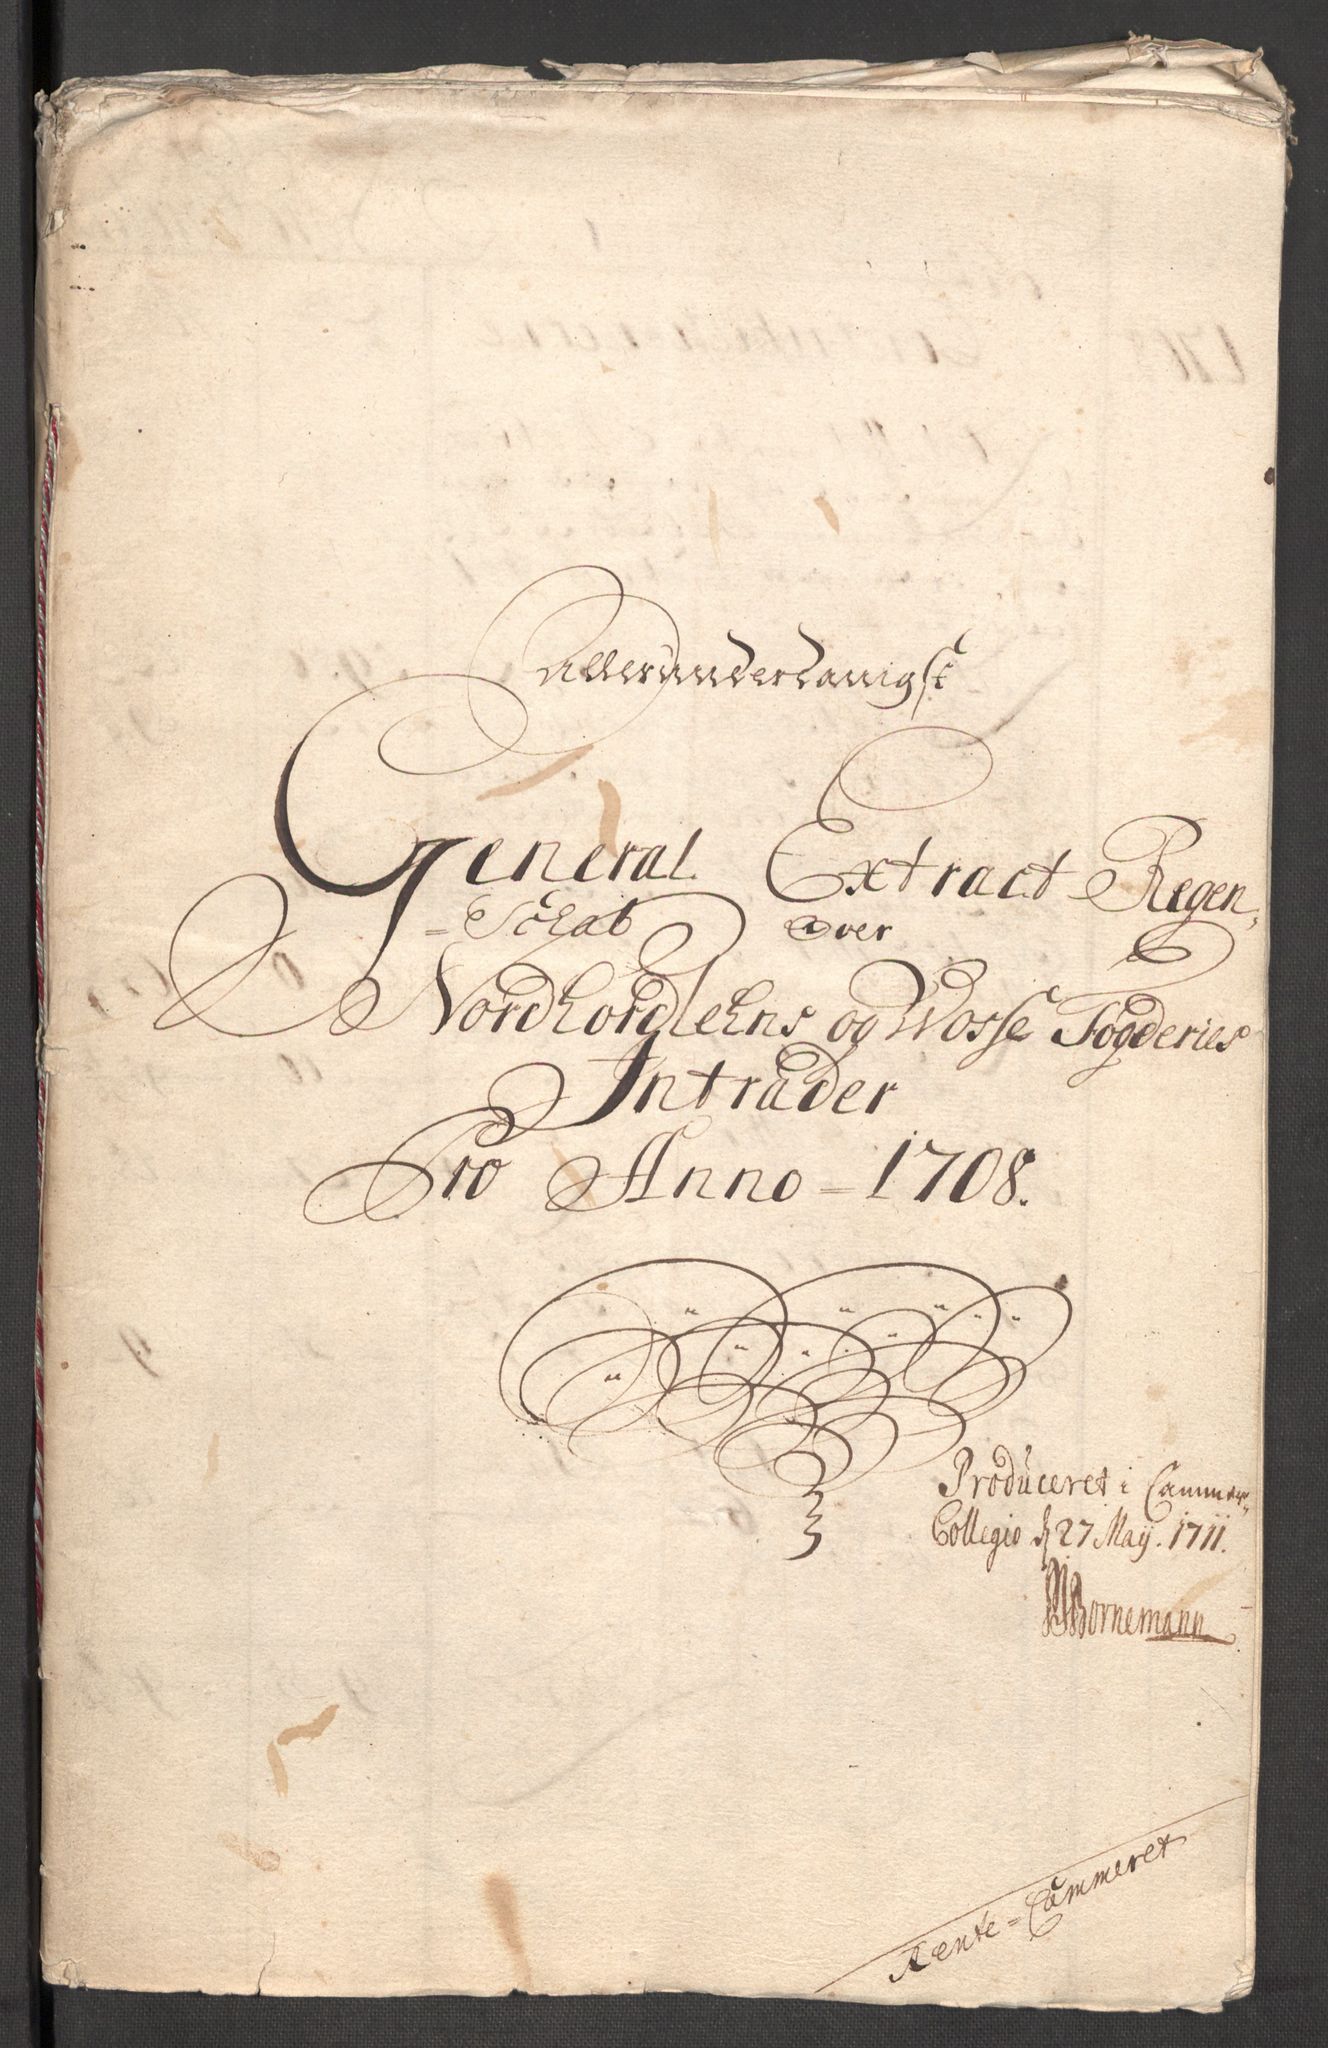 Allerunderdanigst
General Extract Regen,
=Schab over
Nordhordlehns og Wosse Fogderies
Intrader
Pro Anno = 1708.
Produceret i Cammer=
Collegio d 27 Maij. 1711.
Bornemann
Rente=Cammeret